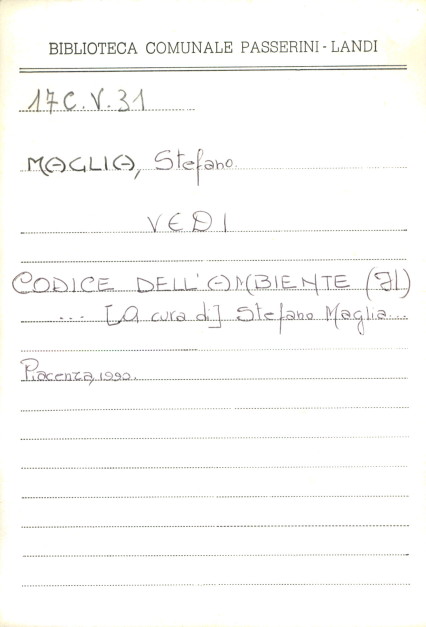 BIBLIOTECA COMUNALE PASSERINI-LANDI
17C.V.31
MAGLIA, Stefano
VEDI
CODICE DELL'AMBIENTE (Il)
... [A cura di] Stefano Maglia...
Piacenza, 1990.